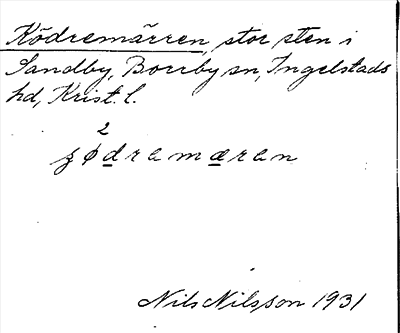 Ködremärren, stor sten i
Sandby, Borrby sn, Ingelstads
hd, Krist. l.
2
ʒødramæran
Nils Nilsson 1931